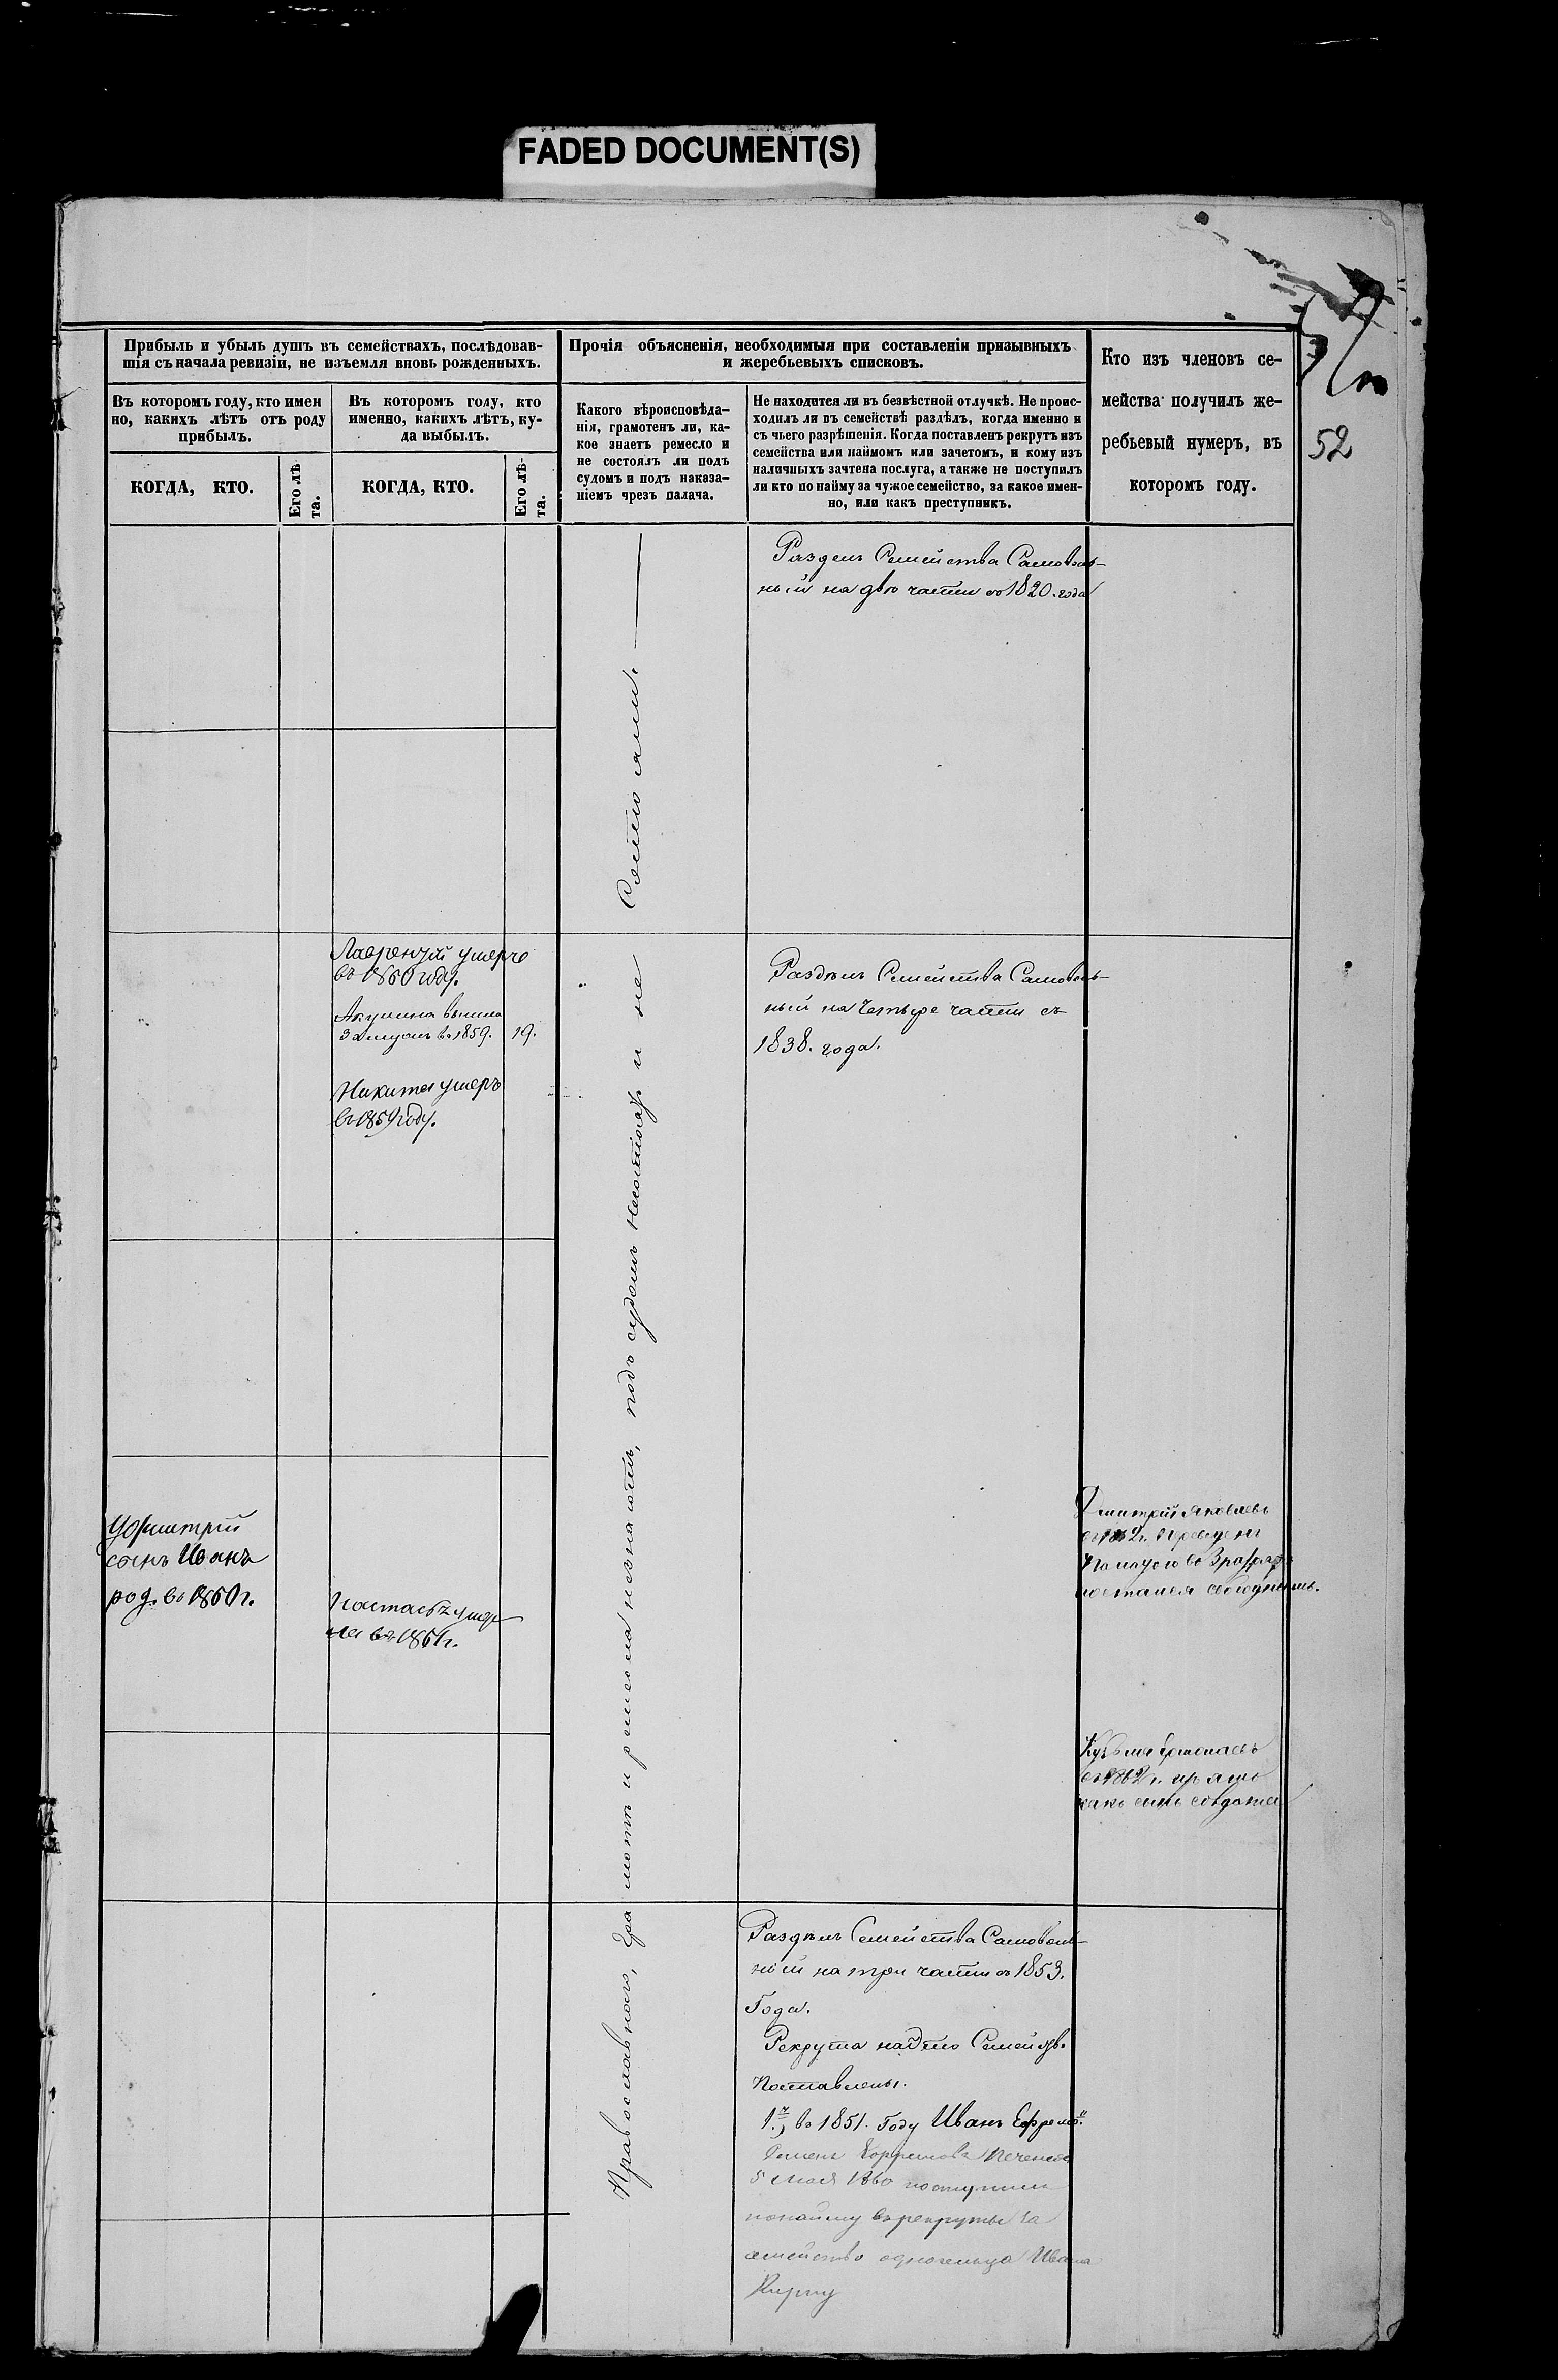 FADED DOCUMENT(S)
52
Прибыль и убыль душъ въ семействахъ, послѣдовав-
шія съ начала ревизіи, не изъемля вновь рожденныхъ.
Въ которомъ году, кто имен
но, какихъ лѣтъ отъ роду
прибылъ.
КОГДА, КТО.
Его лѣ-
та.
Въ которомъ году, кто
именно, какихъ лѣтъ, ку-
да выбылъ.
КОГДА, КТО.
Его лѣ-
та.
Прочія объясненія, необходимыя при составленіи призывныхъ
и жеребьевыхъ списковъ.
Какого вѣроисповѣда-
нія, грамотенъ ли, ка-
кое знаетъ ремесло и
не состоялъ ли подъ
судомъ и подъ наказа-
ніемъ чрезъ палача.
Не находится ли въ безвѣстной отлучкѣ. Не проис-
ходилъ ли въ семействѣ раздѣлъ, когда именно и
съ чьего разрѣшенія. Когда поставленъ рекрутъ изъ
семейства или наймомъ или зачетомъ, и кому изъ
наличныхъ зачтена послуга, а также не поступилъ
ли кто по найму за чужое семейство, за какое имен-
но, или какъ преступникъ.
Кто изъ членовъ се-
мейства получилъ же-
ребьевый нумеръ, въ
которомъ году.
Православнаго, грамоты и ремесла незнаютъ, подъ судомъ несостоятъ и не состояли.
Раздѣлъ Семейства Самоволь-
ный на двѣ части съ 1820. года
Лаврентій умеръ
въ 1860 году.
Акулина вышла
замужъ въ 1859. 19.
Никита умеръ
въ 1859 году.
Раздѣлъ Семейства Самоволь-
ный на Четыре части съ
1838. года.
сынъ Иванъ
род. въ 1860 г.
ла въ 1861 г.
Дмитрій Яковлевъ
въ 1862 г.
Кузьма
въ 1862 г.
какъ сынъ солдата
Раздѣлъ Семейства Самоволь-
ный на три части съ 1853.
Года.
Рекрута
Поставлены.
1й, въ 1851. Году Иванъ Ефремо.
5 мая 1860 поступилъ
понайму въ рекруты за
семейство односельца Ивана